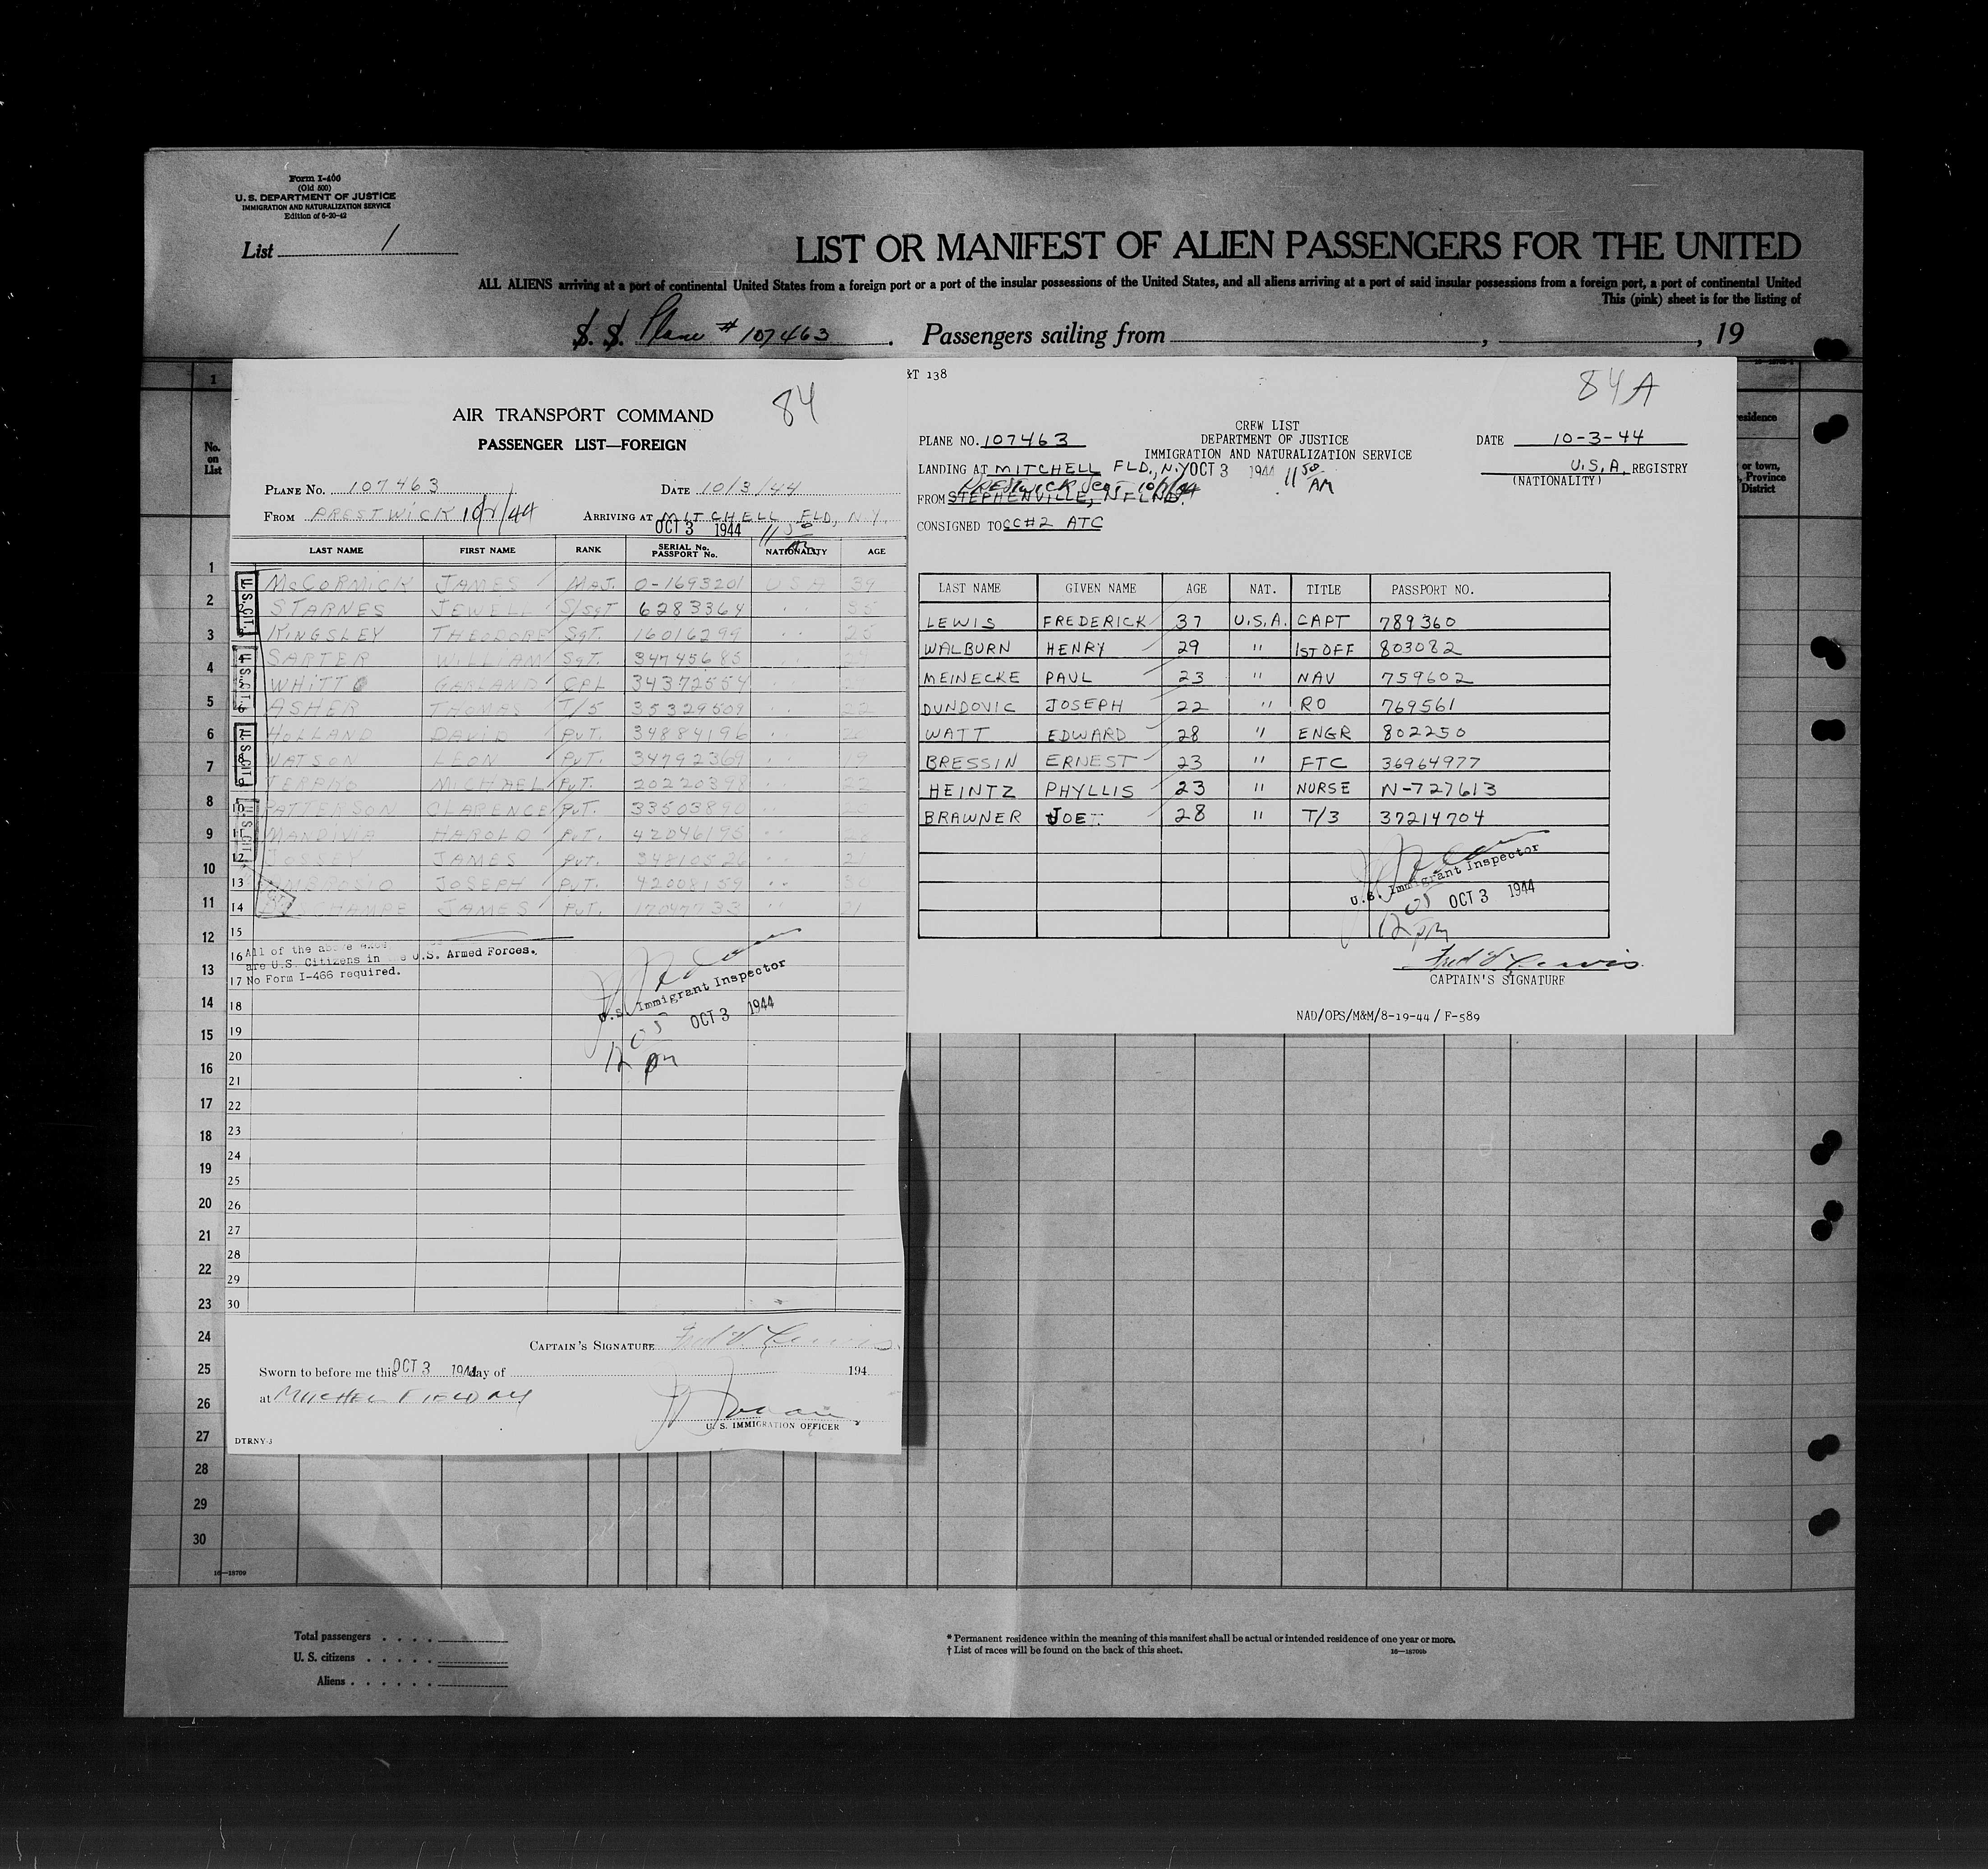 Form I-400
(Old 500)
U. S. DEPARTMENT OF JUSTICE
IMMIGRATION AND NATURALIZATION SERVICE
Edition of 6-20-42
List 1
LIST OR MANIFEST OF ALIEN PASSENGERS FOR THE UNITED
ALL ALIENS arriving at a port of continental United States from a foreign port or a port of the insular possessions of the United States, and all aliens arriving at a port of said insular possessions from a foreign port, a port of continental United
This (pink) sheet is for the listing of
S. S. Plane # 107463 . Passengers sailing from , , 19
1
No. on List
esidence
or town, Province District
84
AIR TRANSPORT COMMAND
PASSENGER LIST—FOREIGN
PLANE No. 107463 DATE 10/3/44
FROM PRESTWICK ARRIVING AT MITCHELL FLD, N.Y.
OCT 3 1944 11 50
LAST NAME FIRST NAME RANK SERIAL No. PASSPORT No. NATIONALITY AGE
McCORMICK JAMES MAJ. 0-1693201 USA 39
STARNES JEWELL S/SGT 6283364 " 35
KINGSLEY THEODORE SGT. 16016299 " 25
SARTER WILLIAM SGT. 34745685 "
WHITT GARLAND CPL 34372554 "
ASHER THOMAS T/5 35329509 " 22
HOLLAND DAVID PVT. 34884196 "
WATSON LEON PVT. 34792369 " 19
MICHAEL PVT. 20220398 " 22
PATTERSON CLARENCE PVT. 33503890 "
MANDIVIA HAROLD PVT. 42046195 "
JAMES PVT. 34810526 " 21
JOSEPH PVT. 42008159 "
JAMES PVT. 17047733 " 21
U.S. CIT.
U.S. CIT.
U.S. CIT.
U.S. CIT.
15
16 All of the above
are U.S. Citizens in U.S. Armed Forces.
17 No Form I-466 required.
U.S. Immigrant Inspector
OCT 3 1944
12 05 pm
18
19
20
21
22
23
24
25
26
27
28
29
30
CAPTAIN'S SIGNATURE Fred'k Lewis
Sworn to before me this OCT 3 1944 day of 194
at MITCHEL FIELD NY
U. S. IMMIGRATION OFFICER
DTRNY-3
&T 138
84A
CREW LIST
DEPARTMENT OF JUSTICE
IMMIGRATION AND NATURALIZATION SERVICE
PLANE NO. 107463
DATE 10-3-44
LANDING AT MITCHELL FLD., N.Y. OCT 3 1944 11 50 AM
U.S.A. REGISTRY
(NATIONALITY)
PRESTWICK
FROM STEPHENVILLE, NFLND.
CONSIGNED TO CC#2 ATC
LAST NAME GIVEN NAME AGE NAT. TITLE PASSPORT NO.
LEWIS FREDERICK 37 U.S.A. CAPT 789360
WALBURN HENRY 29 " 1ST OFF 803082
MEINECKE PAUL 23 " NAV 759602
DUNDOVIC JOSEPH 22 " RO 769561
WATT EDWARD 28 " ENGR 802250
BRESSIN ERNEST 23 " FTC 36964977
HEINTZ PHYLLIS 23 " NURSE N-727613
BRAWNER JOE 28 " T/3 37214704
U.S. Immigrant Inspector
OCT 3 1944
12 05 pm
Fred'k Lewis
CAPTAIN'S SIGNATURE
NAD/OPS/M&M/8-19-44 / F-589
1
2
3
4
5
6
7
8
9
10
11
12
13
14
15
16
17
18
19
20
21
22
23
24
25
26
27
28
29
30
16—18709
Total passengers . . . .
U. S. citizens . . . . .
Aliens . . . . . .
* Permanent residence within the meaning of this manifest shall be actual or intended residence of one year or more.
† List of races will be found on the back of this sheet.
16—18709b